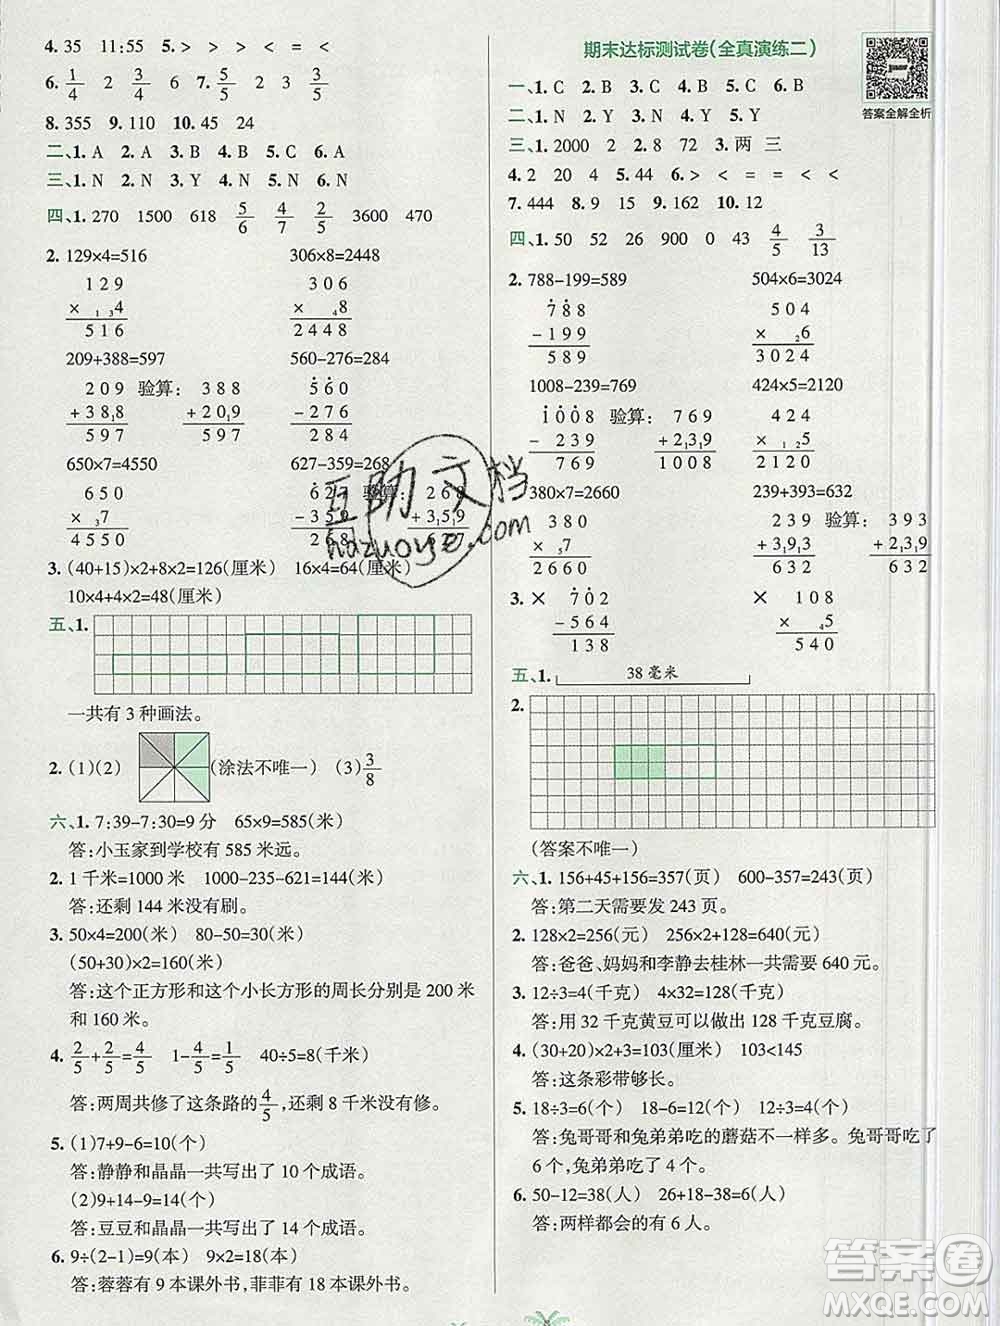 4. 35 11:55 5. > > > < >
6. 1/4 2 3/4 < 7. 5/5 2 3 4/5
8. 355 9. 110 10. 45 24
二、1. A 2. A 3. B 4. B 5. C 6. A
三、1. N 2. N 3. Y 4. N 5. N 6. N
四、1. 270 1500 618 5/6 4/7 2/5 3600 470
2. 129×4=516 306×8=2448
129 306
× ₁ ₃4 × ₄8
516 2448
209+388=597 560-276=284
209 验算: 388 560
+38₁8 +20₁9 -276
597 597 284
650×7=4550 627-359=268
650 627 验算: 268
× ₃7 -359 +3₁5₁9
4550 268 627
3. (40+15)×2+8×2=126(厘米) 16×4=64(厘米)
10×4+4×2=48(厘米)
五、1.
一共有 3 种画法。
2. (1)(2) (涂法不唯一) (3)3/8
六、1. 7:39-7:30=9 分 65×9=585(米)
答:小玉家到学校有 585 米远。
2. 1 千米=1000 米 1000-235-621=144(米)
答:还剩 144 米没有刷。
3. 50×4=200(米) 80-50=30(米)
(50+30)×2=160(米)
答:这个正方形和这个小长方形的周长分别是 200 米
和 160 米。
4. 2/5+2/5=4/5 1-4/5=1/5 40÷5=8(千米)
答:两周共修了这条路的4/5,还剩 8 千米没有修。
5. (1)7+9-6=10(个)
答:静静和晶晶一共写出了 10 个成语。
(2)9+14-9=14(个)
答:豆豆和晶晶一共写出了 14 个成语。
6. 9÷(2-1)=9(本) 9×2=18(本)
答:蓉蓉有 9 本课外书,菲菲有 18 本课外书。
期末达标测试卷(全真演练二)
答案全解全析
一、1. C 2. B 3. C 4. C 5. A 6. B
二、1. N 2. Y 3. N 4. Y 5. N
三、1. 2000 2 2. 8 72 3. 两 三
4. 2 20 4 5. 44 6. > < = = < <
7. 444 8. 9 15 9. 162 10. 12
四、1. 50 52 26 900 0 43 4/5 3/13
2. 788-199=589 504×6=3024
788 504
-199 × ₂6
589 3024
1008-239=769 424×5=2120
1008 验算: 769 424
-239 +2₁3₁9 × ₁₂5
769 1008 2120
380×7=2660 239+393=632
380 239 验算: 393
× ₅7 +3₁9₁3 +2₁3₁9
2660 632 632
3. × 702 × 108
-564 × ₄5
138 540
五、1. 38 毫米
2.
(答案不唯一)
六、1. 156+45+156=357(页) 600-357=243(页)
答:第二天需要发 243 页。
2. 128×2=256(元) 256×2+128=640(元)
答:爸爸、妈妈和李静去桂林一共需要 640 元。
3. 12÷3=4(千克) 4×32=128(千克)
答:用 32 千克黄豆可以做出 128 千克豆腐。
4. (30+20)×2+3=103(厘米) 103<145
答:这条彩带够长。
5. 18÷3=6(个) 18-6=12(个) 12÷3=4(个)
答:兔哥哥和兔弟弟吃的蘑菇不一样多。兔哥哥吃了
6 个,兔弟弟吃了 4 个。
6. 50-12=38(人) 26+18-38=6(人)
答:两样都会的有 6 人。
互助文档
hazuoye.com
答案圈
MXQE.COM